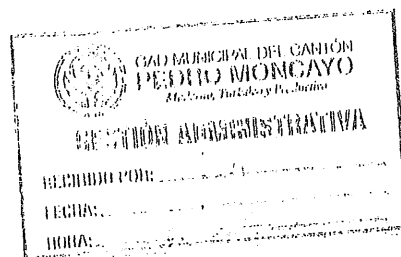 GAD MUNICIPAL DEL CANTÓN
PEDRO MONCAYO
GESTIÓN ADMINISTRATIVA
RECIBIDO POR:
FECHA:
HORA: